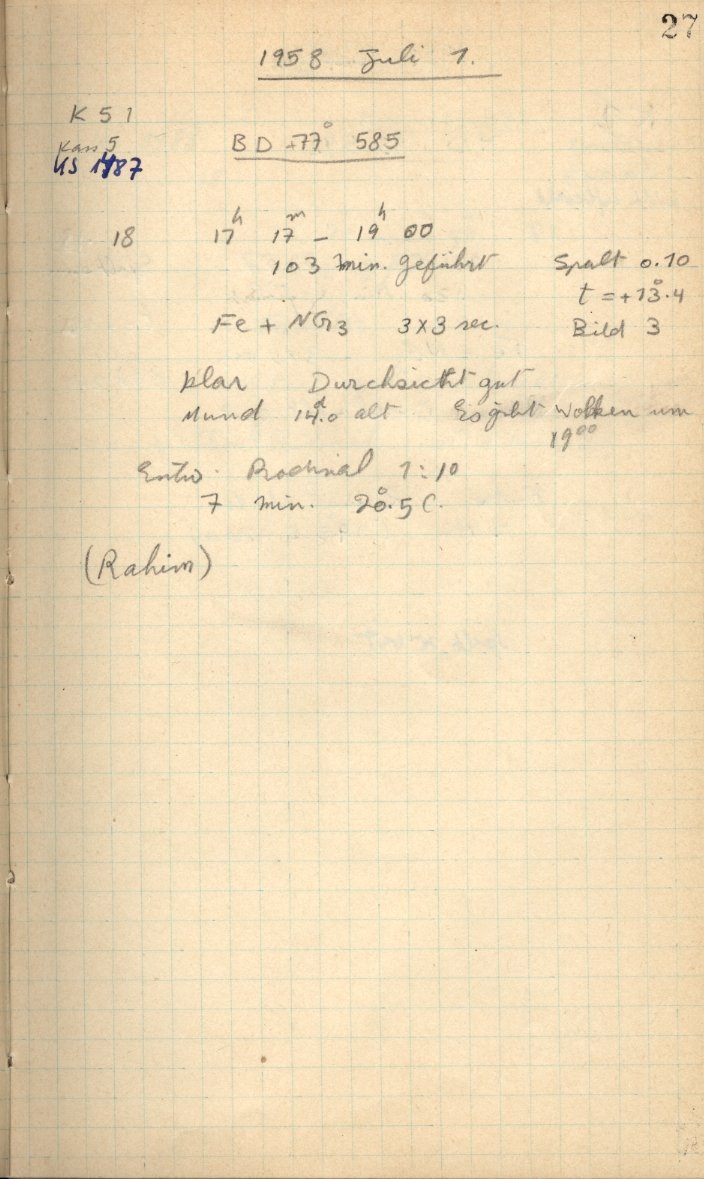 27
1958 Juli 1.
K 51
Kass 5
BD +77° 585
US 1487
18 17h 17m – 19h 00
103 min. geführt Spalt 0.10
t = +13°.4
Fe + NGr3 3x3 sec. Bild 3
klar Durchsicht gut
Mond 14d.0 alt Es gibt Wolken um
19 00
Entw. Rodinal 1:10
7 min. 20°.5 C.
(Rahim)